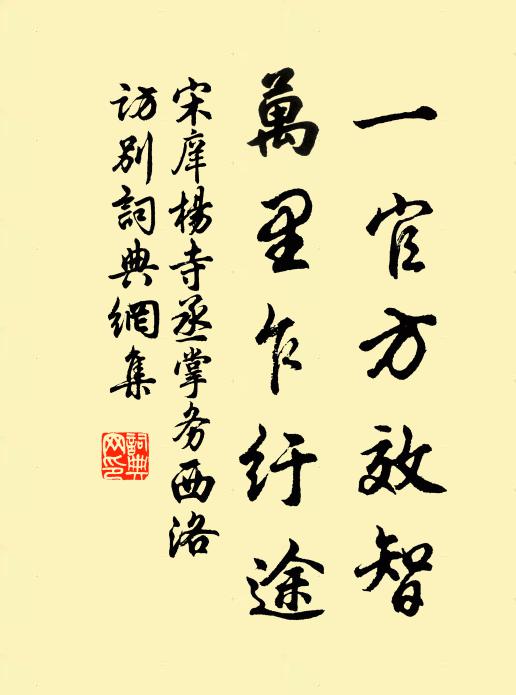 一官方效智
萬里乍紆途
宋庠楊寺丞掌务西洛
訪别詞典網集
詞典
网印